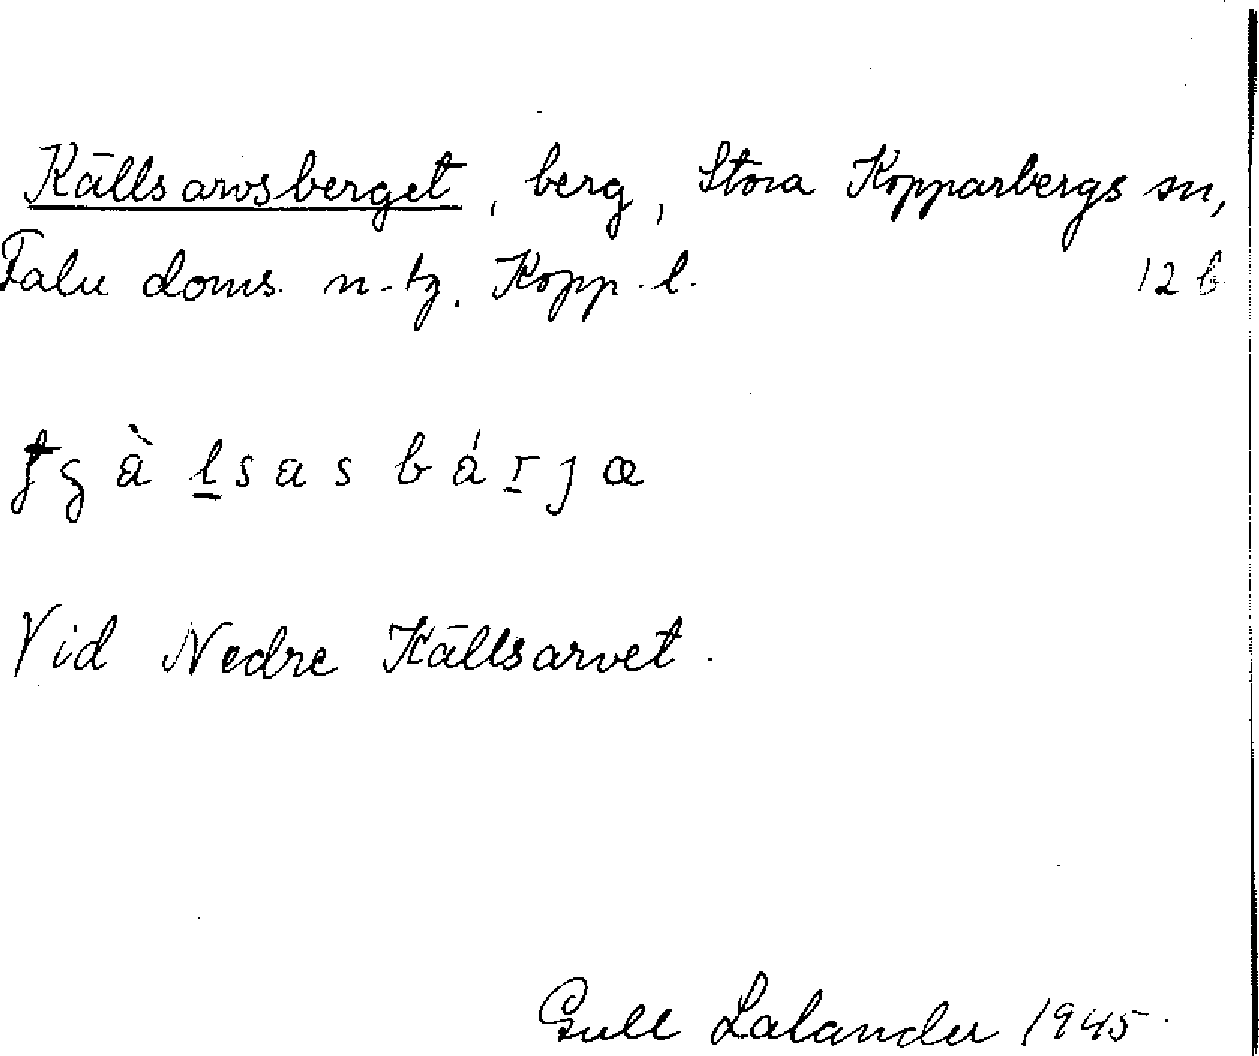 Källsarvsberget, berg, Stora Kopparbergs sn,
Falu doms. n. tg. Kopp. l. 12 b
Vid Nedre Källsarvet.
Gull Lalander 1945.